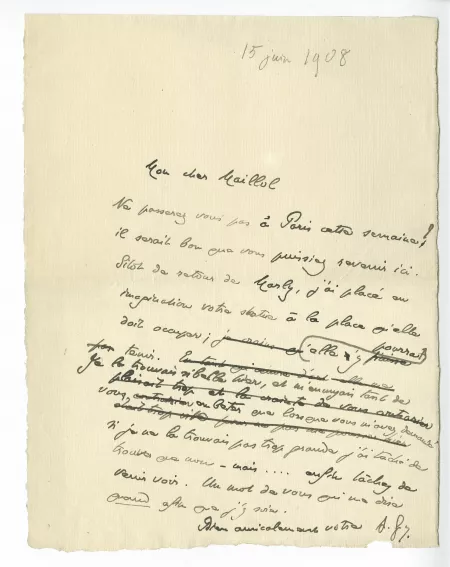 15 juin 1908
Mon cher Maillol
Ne passerez vous pas à Paris cette semaine?
il serait bon que vous puissiez revenir ici.
Sitôt de retour de Marly, j'ai placé en
imagination votre statue à la place qu'elle
doit occuper; je crains qu'elle n'y puisse pourrait
pas tenir.
Je la trouvais si belle hier, et m'ennuyais tant de
plaisait trop et la crainte de vous contrarier
vous, que lorsque vous m'avez demandé
si je ne la trouvais pas trop grande j'ai tâché de
trouver que non - mais .... enfin tâchez de
venir voir. Un mot de vous qui me dise
quand afin que j'y sois.
Bien amicalement votre A. G.